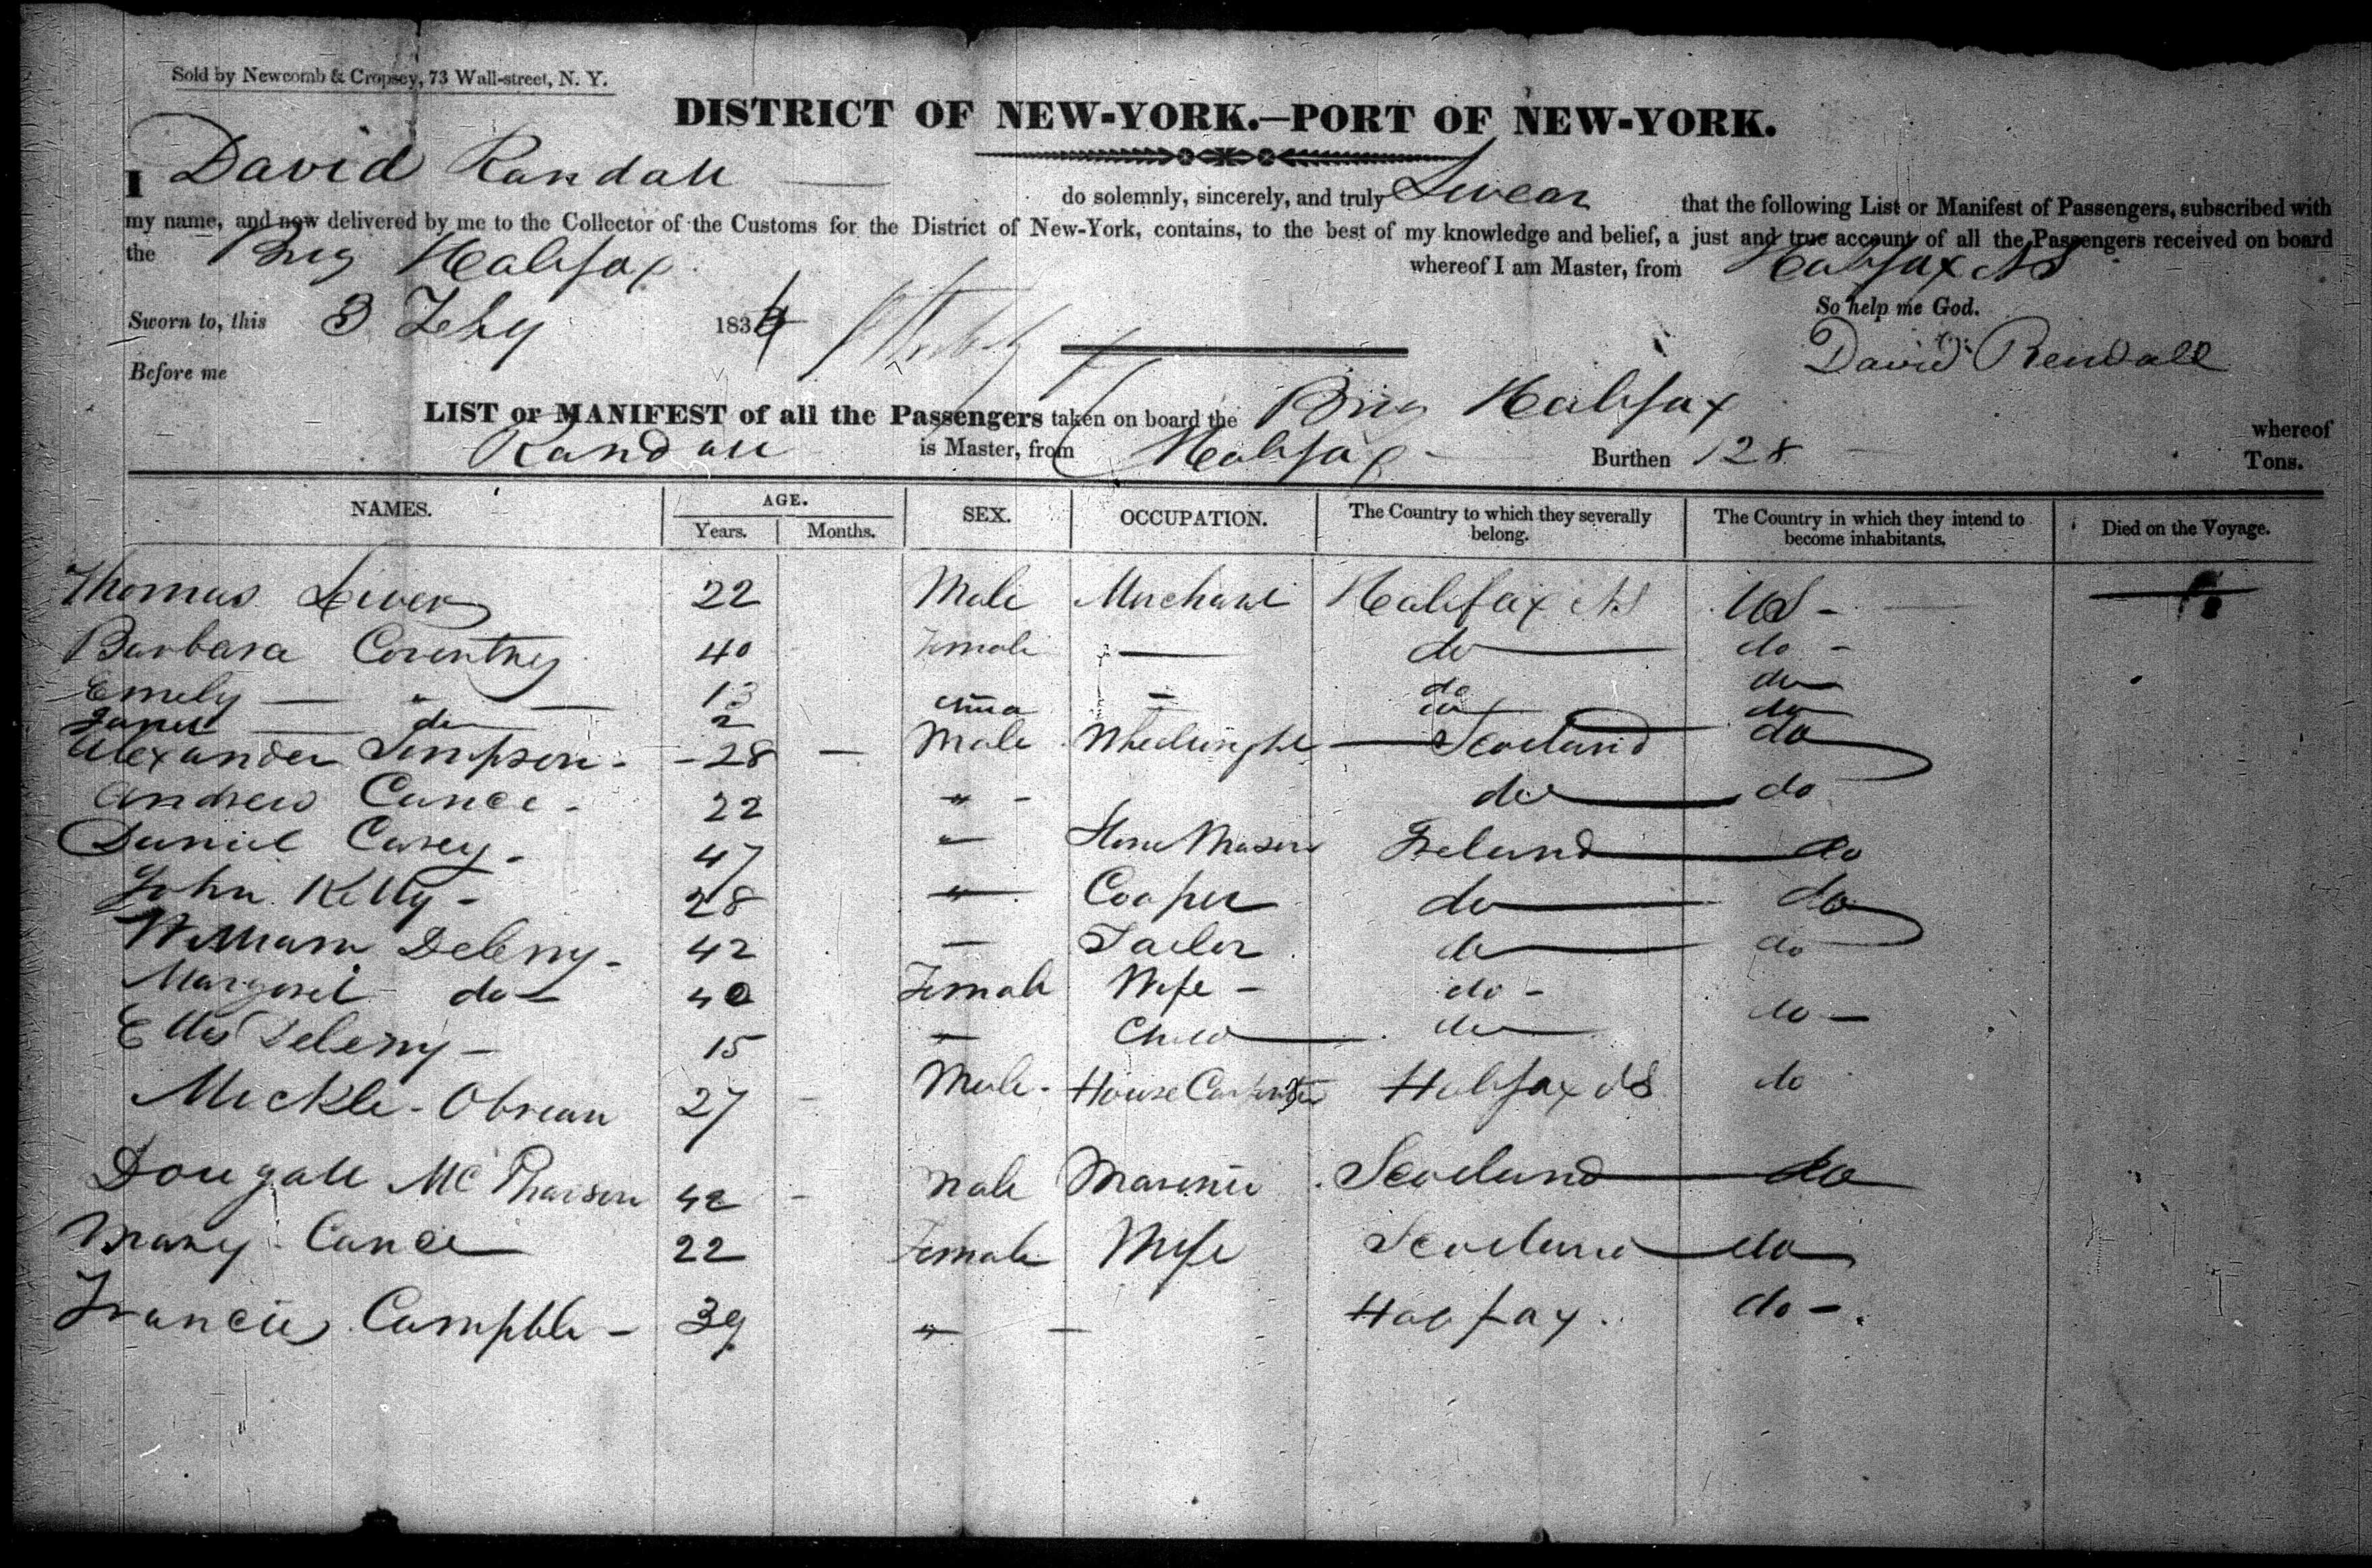 Sold by Newcomb & Cropsey, 73 Wall-street, N. Y.
DISTRICT OF NEW-YORK.—PORT OF NEW-YORK.
I David Randall do solemnly, sincerely, and truly Swear that the following List or Manifest of Passengers, subscribed with
my name, and now delivered by me to the Collector of the Customs for the District of New-York, contains, to the best of my knowledge and belief, a just and true account of all the Passengers received on board
the Brig Halifax whereof I am Master, from Halifax NS
So help me God.
Sworn to, this 3 Feby 183
David Rendall
Before me
LIST or MANIFEST of all the Passengers taken on board the Brig Halifax whereof
Randall is Master, from Halifax Burthen 128 Tons.
NAMES. AGE. SEX. OCCUPATION. The Country to which they severally belong. The Country in which they intend to become inhabitants. Died on the Voyage.
Years. Months.
Thomas 22 Male Merchant Halifax NS US -
Barbara Coventney 40 Female — do do -
Emely — " — 13 - do do
do 2 do do
Alexander Simpson - 28 — Male Scotland do
Andrew Cance - 22 " - do do
Daniel Casey - 47 " Stone Mason Ireland do
John Kelly - 28 " Cooper do do
William Deleny - 42 — Tailor do do
Margaret do 40 Female Wife - do -
Deleny - 15 " Child do do -
Mickle - Obrean 27 - Male - House Carpenter Halifax NS do
Dougall Mc Pharson 42 - Male Marine Scotland do
Mary Cance 22 Female Wife Scotland do
Francis Campble - 39 " — Halifax. do -